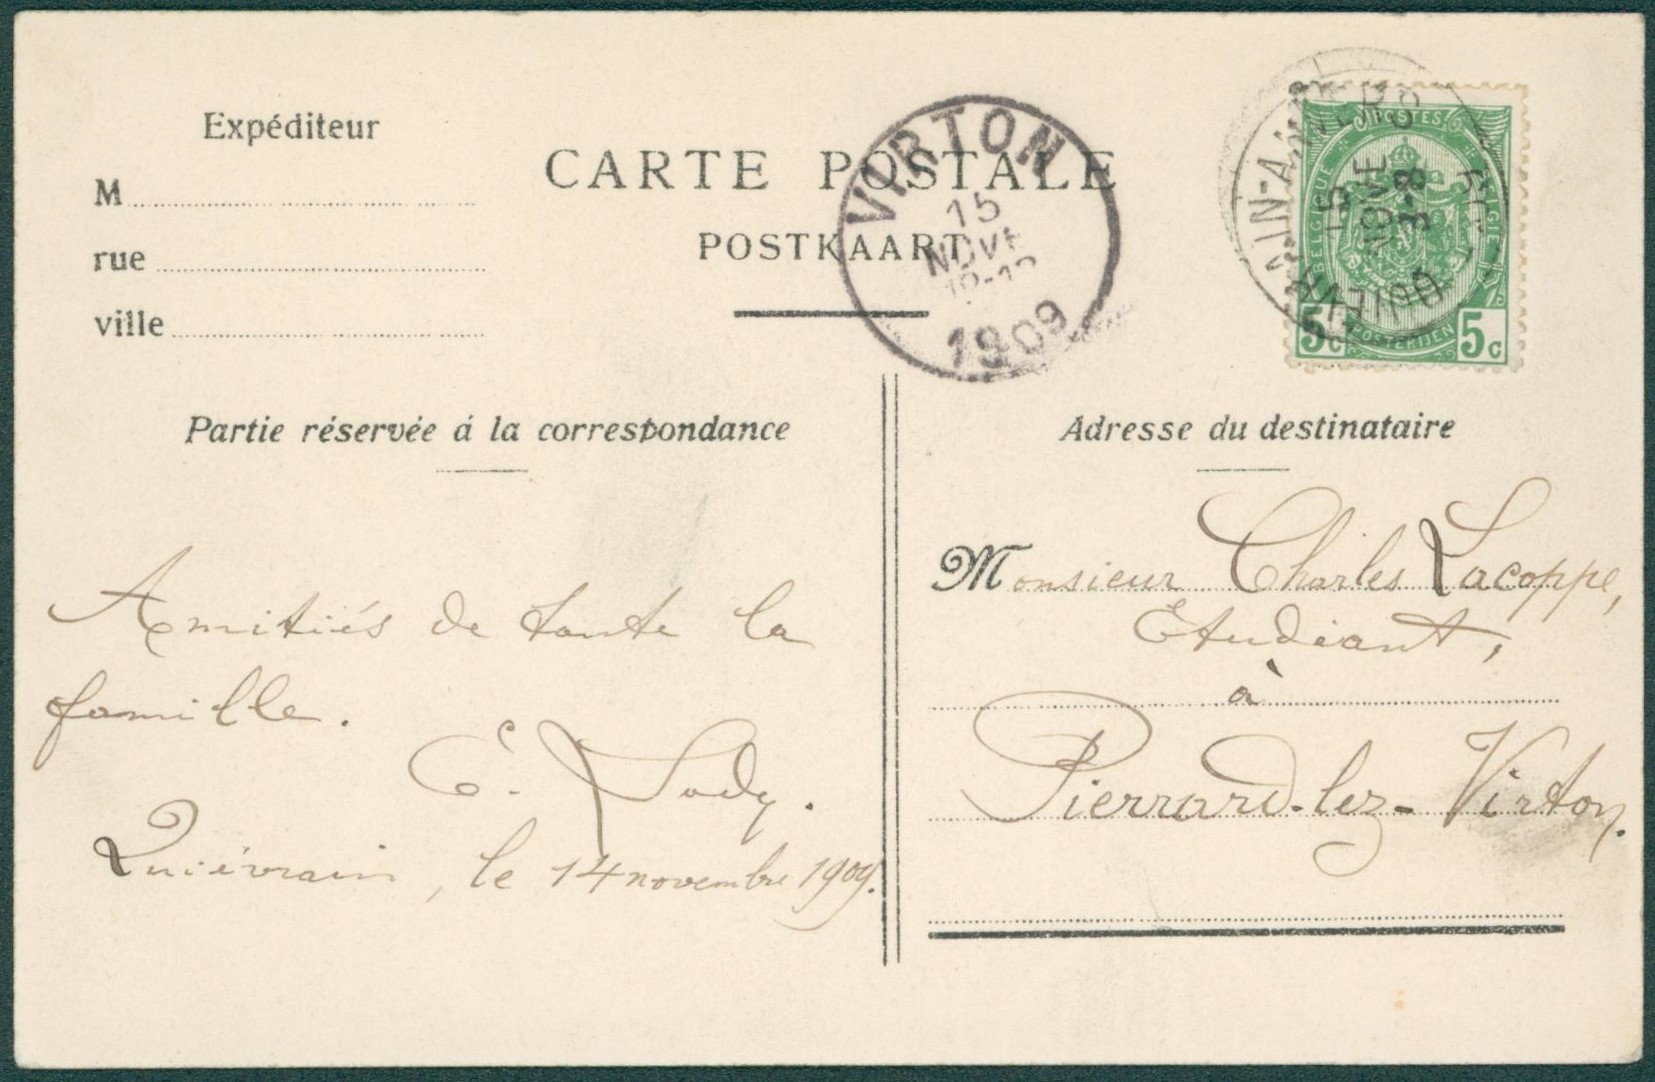 Expéditeur
M
rue
ville
CARTE POSTALE
POSTKAART
VIRTON
15
NOVE
1909
QUIÉVRAIN-ANVERS
15
NOVE
3-8
POSTES
BELGIQUE
BELGIË
POSTERIJEN
5c
5c
Partie réservée á la correspondance
Adresse du destinataire
Amitiés de toute la
famille.
Quiévrain, le 14 novembre 1909.
Monsieur Charles Lacoppe,
Etudiant,
à
Pierrard-lez-Virton.